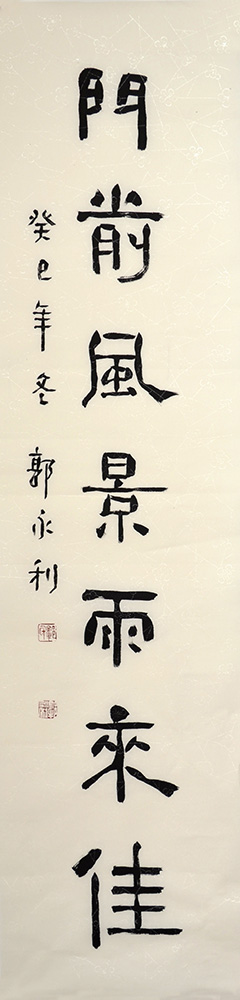 門前風景雨來佳
癸巳年冬 郭永利